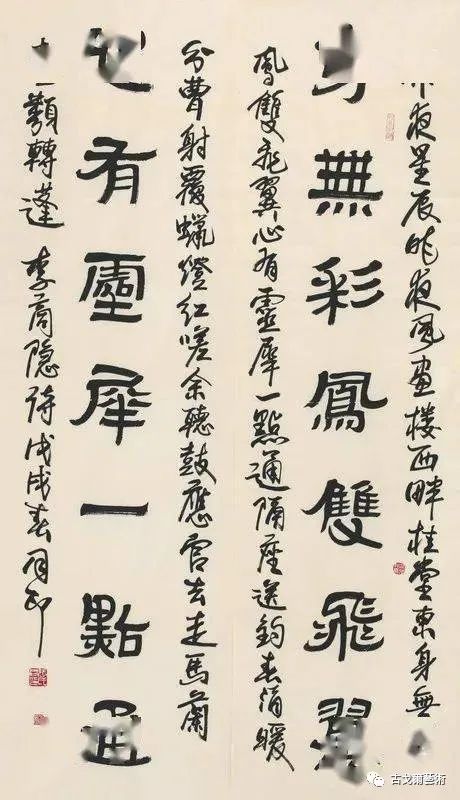 夜星辰昨夜風画楼西畔桂堂東身無
無彩鳳雙飛翼
鳳雙飛翼心有靈犀一點通隔座送鈎春酒暖
分曹射覆蠟燈紅嗟余聽鼓應官去走馬蘭
有靈犀一點通
類轉蓬 李商隐詩戊戌春月
古戈爾藝術